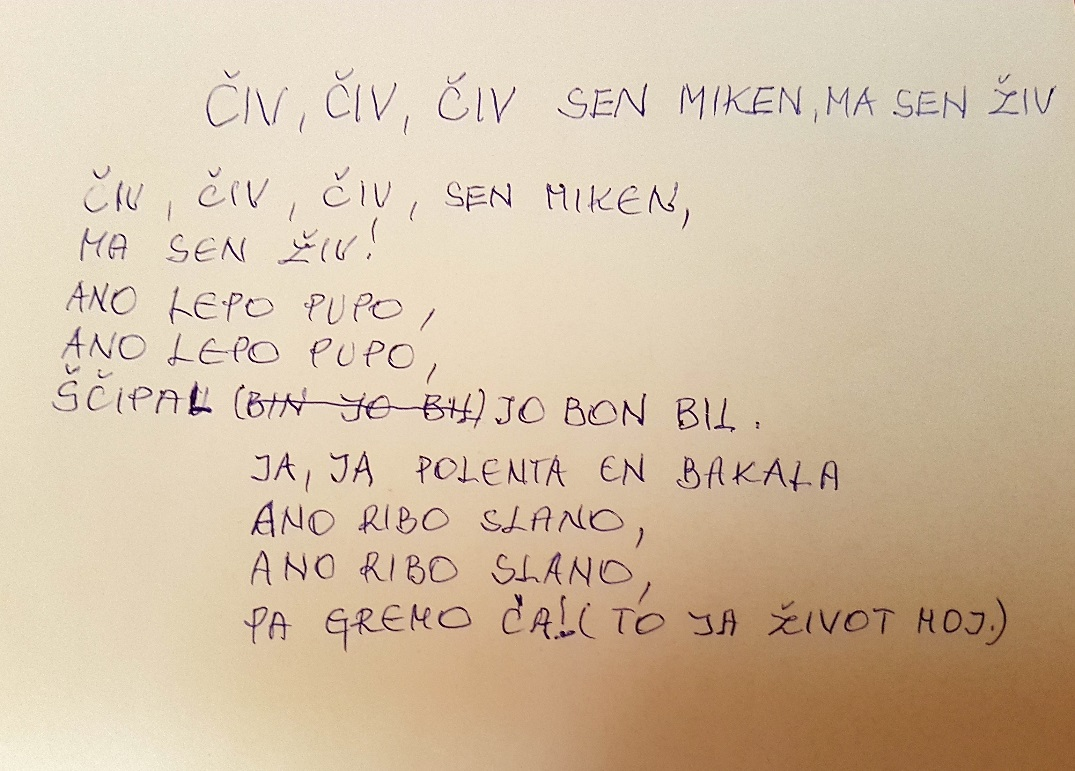 ČIV, ČIV, ČIV SEN MIKEN, MA SEN ŽIV
ČIV, ČIV, ČIV, SEN MIKEN,
MA SEN ŽIV!
ANO LEPO PUPO,
ANO LEPO PUPO,
ŠČIPAL (BIN JO BIL) JO BON BIL.
JA, JA POLENTA EN BAKALA
ANO RIBO SLANO,
ANO RIBO SLANO,
PA GREMO ČA! (TO JA ŽIVOT MOJ.)